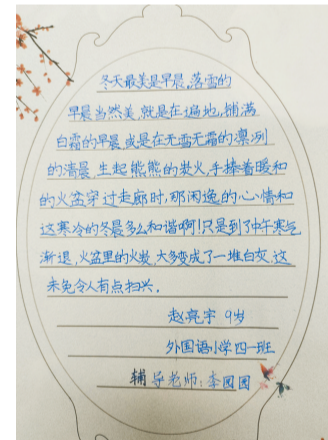 冬天最美是早晨,落雪的
早晨当然美,就是在遍地,铺满
白霜的早晨,或是在无雪无霜的凛冽
的清晨,生起熊熊的炭火,手捧着暖和
的火盆穿过走廊时,那闲逸的心情和
这寒冷的冬晨多么和谐啊!只是到了中午寒气
渐退,火盆里的火炭,大多变成了一堆白灰,这
未免令人有点扫兴。
赵亮宇 9岁
外国语小学四一班
辅导老师:李园园